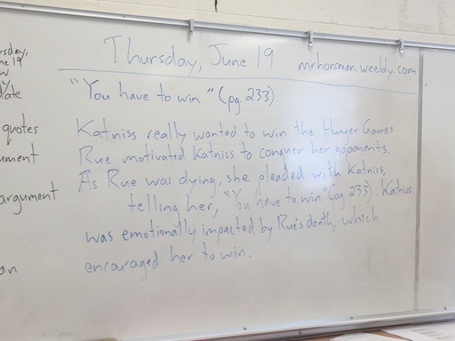 Thursday, June 19 mrhorsman.weebly.com
"You have to win" (pg 233).
Katniss really wanted to win the Hunger Games.
Rue motivated Katniss to conquer her opponents.
As Rue was dying, she pleaded with Katniss,
telling her, "You have to win" (pg 233). Katniss
was emotionally impacted by Rue's death, which
encouraged her to win.
quotes
argument